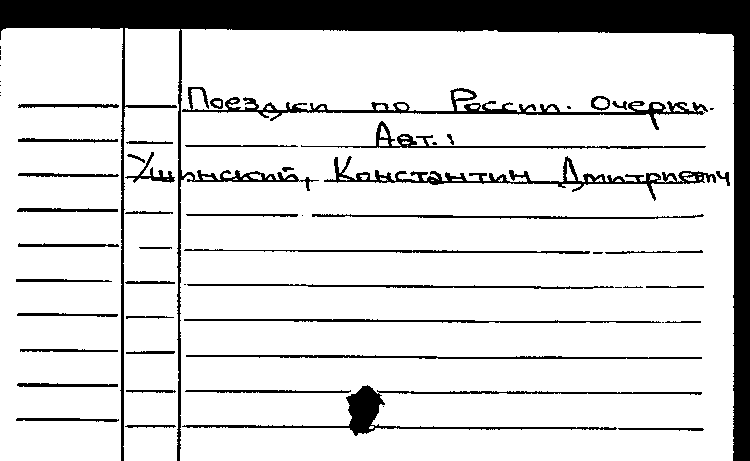 Поездки по России. Очерки.
Авт.:
Ушинский, Константин Дмитриевич